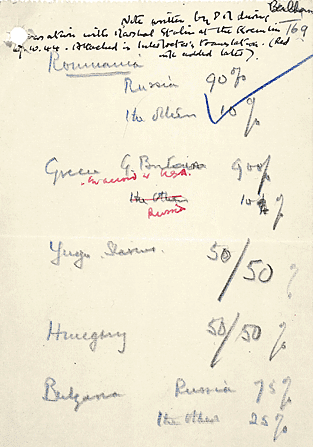 Note written by P.M during
conversation with Marshal Stalin at the Kremlin /169
9.10.44. Attached is Interpreter's translation. (Red
ink added later).
Roumania
Russia 90%
the others 10%
Greece G. Britain 90%
in accord w USA.
the others 10%
Russia
Yugo Slavia 50/50 %
Hungary 50/50 %
Bulgaria Russia 75%
the others 25%